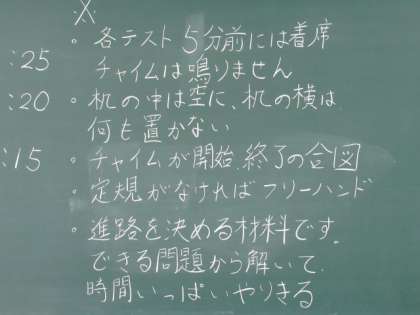 ※
。各テスト5分前には着席
:25 チャイムは鳴りません
:20 。机の中は空に、机の横は
何も置かない
:15 。チャイムが開始、終了の合図
。定規がなければフリーハンド
。進路を決める材料です。
できる問題から解いて、
時間いっぱいやりきる